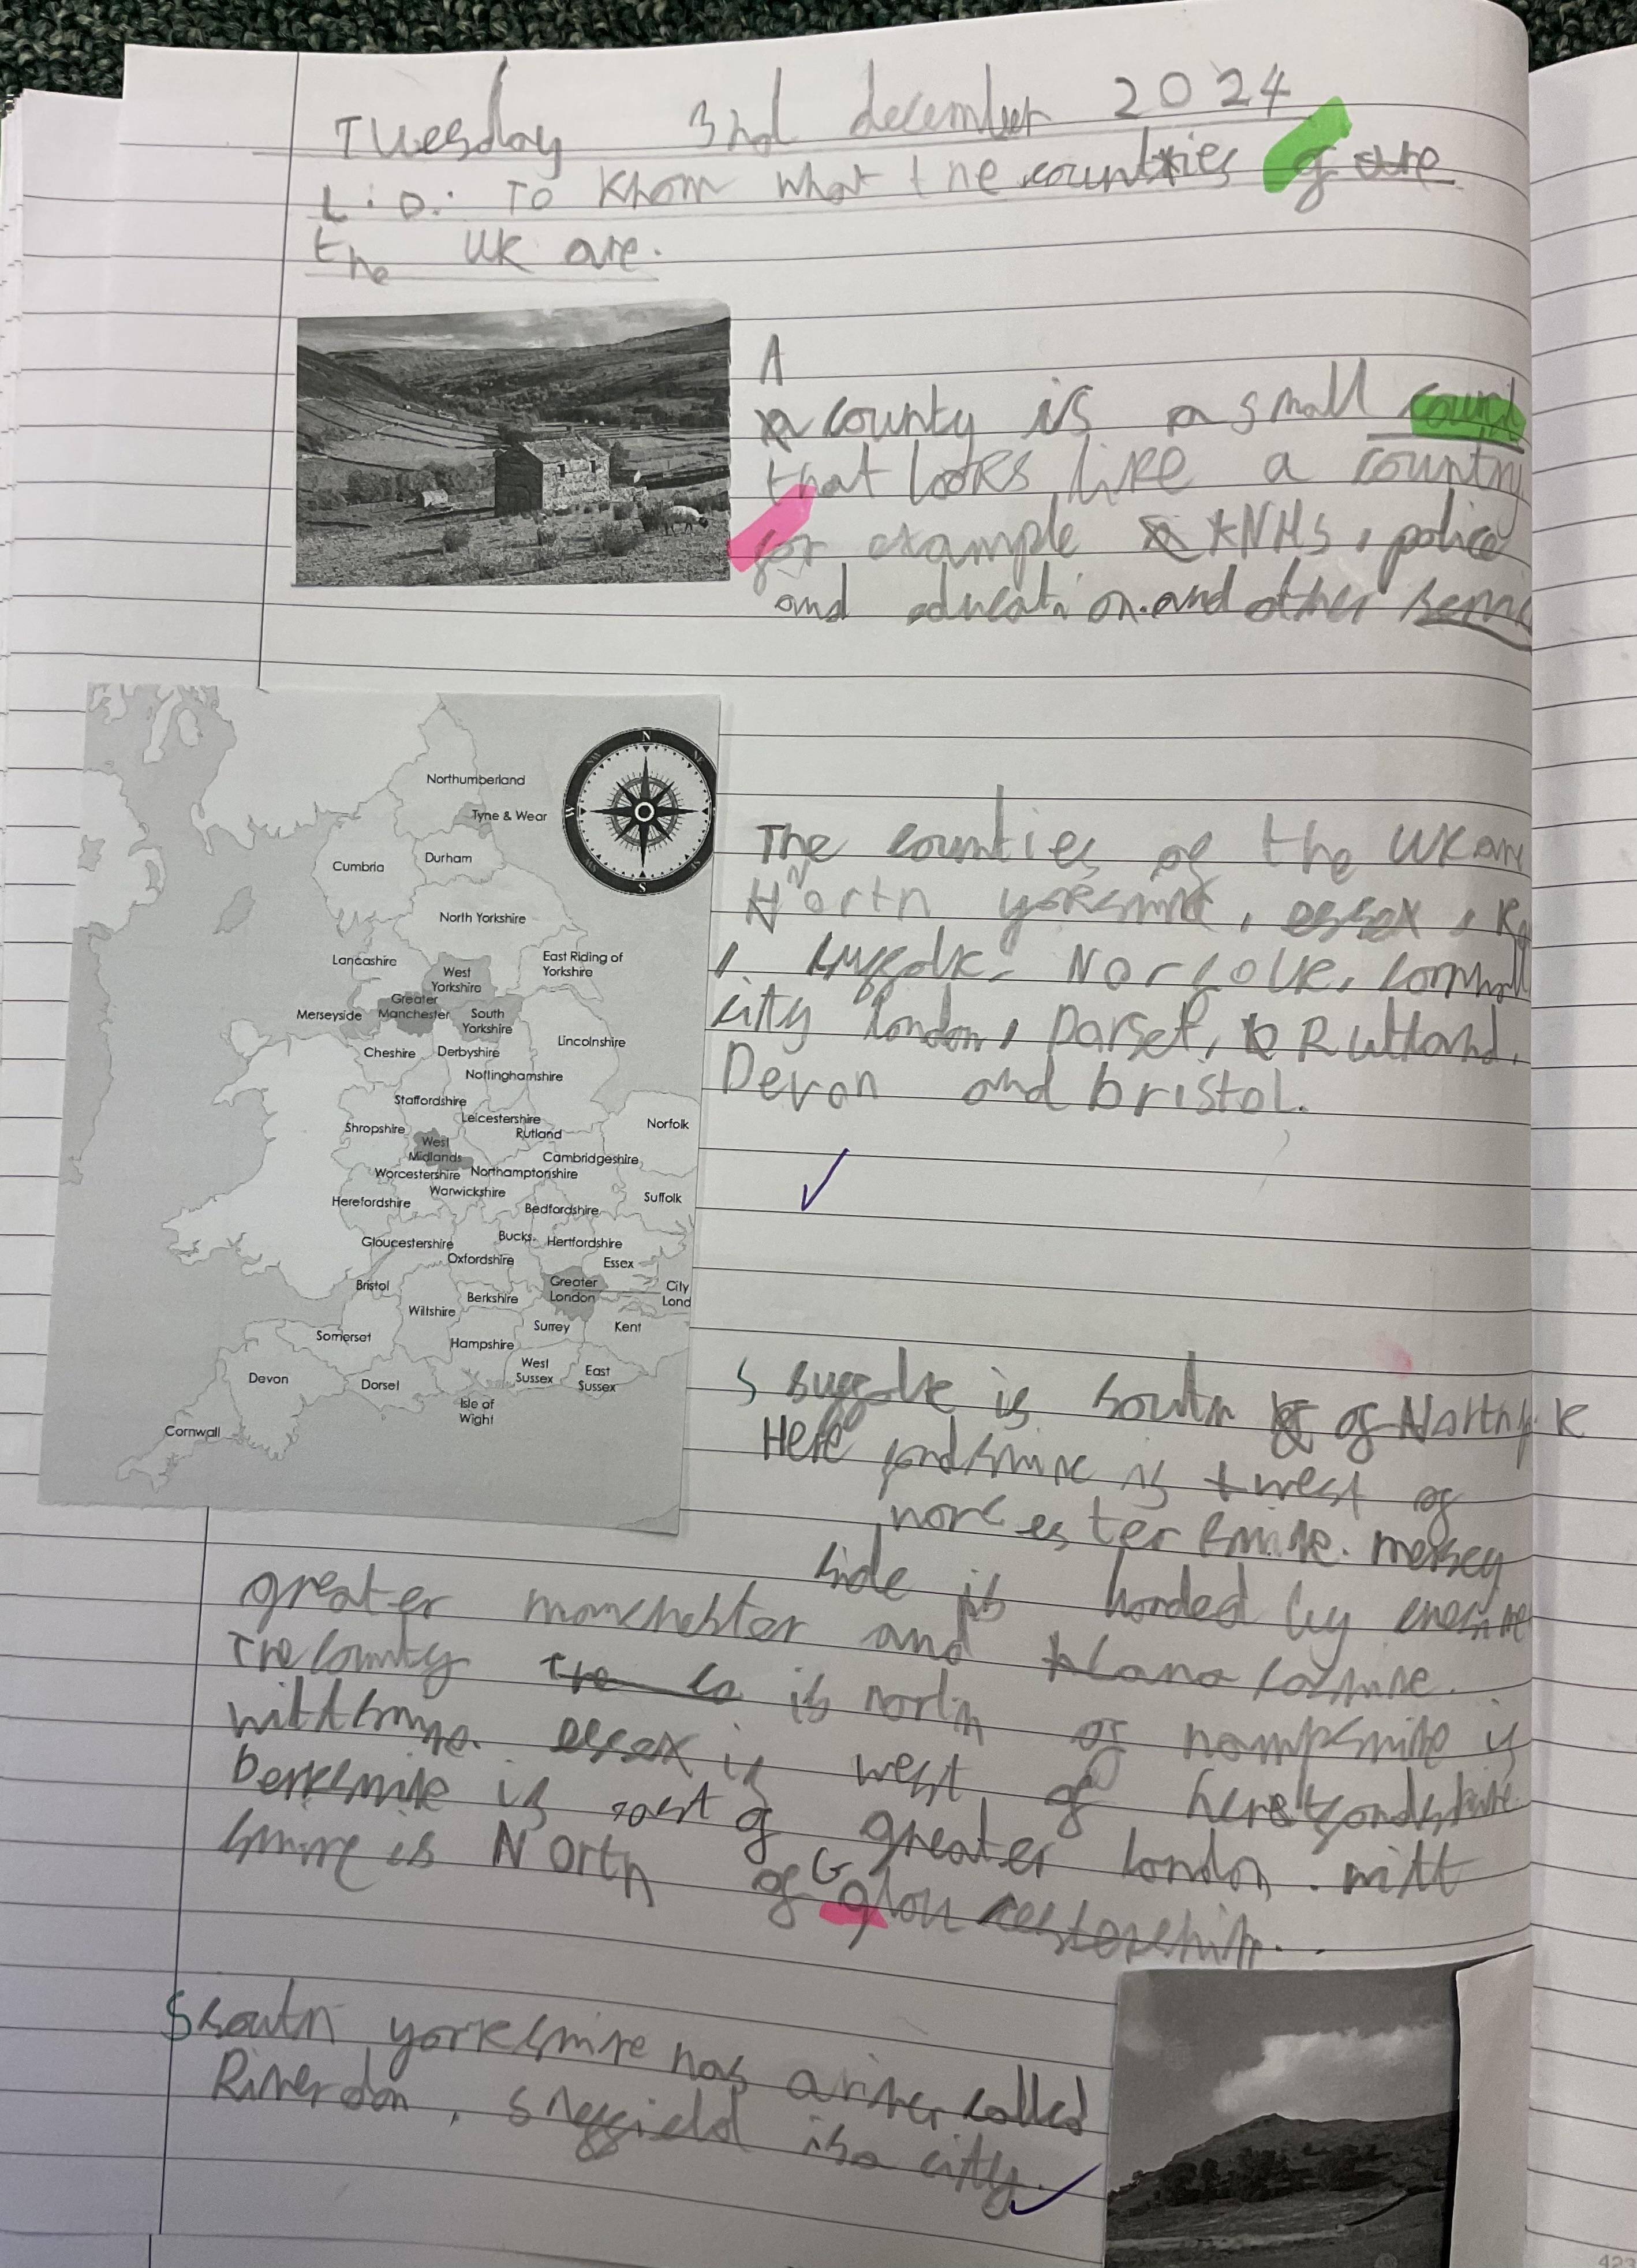 Tuesday 3nd december 2024
L.O.: To Know what the counties of
the UK are.
A
county is a small
that looks like a country
for example NHS, police
and education. and other
The counties of the UK are
North yorkshire, essex,
, suffolk, Norfolk, cornwall
city london, Dorset, Rutland,
Devon and bristol.
S suffolk is south of
Here fordshire is west of
worcestershire. mersey
side is borded by cheshire
greater manchester and lancashire.
The county is north of hampshire is
wiltshire. essex is west of
berkshire is west of greater london. wilt
shire is North of G glou cestershir.
S south yorkshire has a river called
River don. sheffield is a city.
N
E
S
W
Northumberland
Tyne & Wear
Cumbria
Durham
North Yorkshire
Lancashire
West
Yorkshire
East Riding of
Yorkshire
Merseyside
Greater
Manchester
South
Yorkshire
Cheshire
Derbyshire
Lincolnshire
Nottinghamshire
Staffordshire
Leicestershire
Norfolk
Shropshire
Rutland
West
Midlands
Cambridgeshire
Worcestershire
Northamptonshire
Warwickshire
Herefordshire
Suffolk
Bedfordshire
Gloucestershire
Bucks.
Hertfordshire
Oxfordshire
Essex
Bristol
Greater
London
City
Lond
Berkshire
Wiltshire
Surrey
Kent
Somerset
Hampshire
West
Sussex
East
Sussex
Devon
Dorset
Isle of
Wight
Cornwall